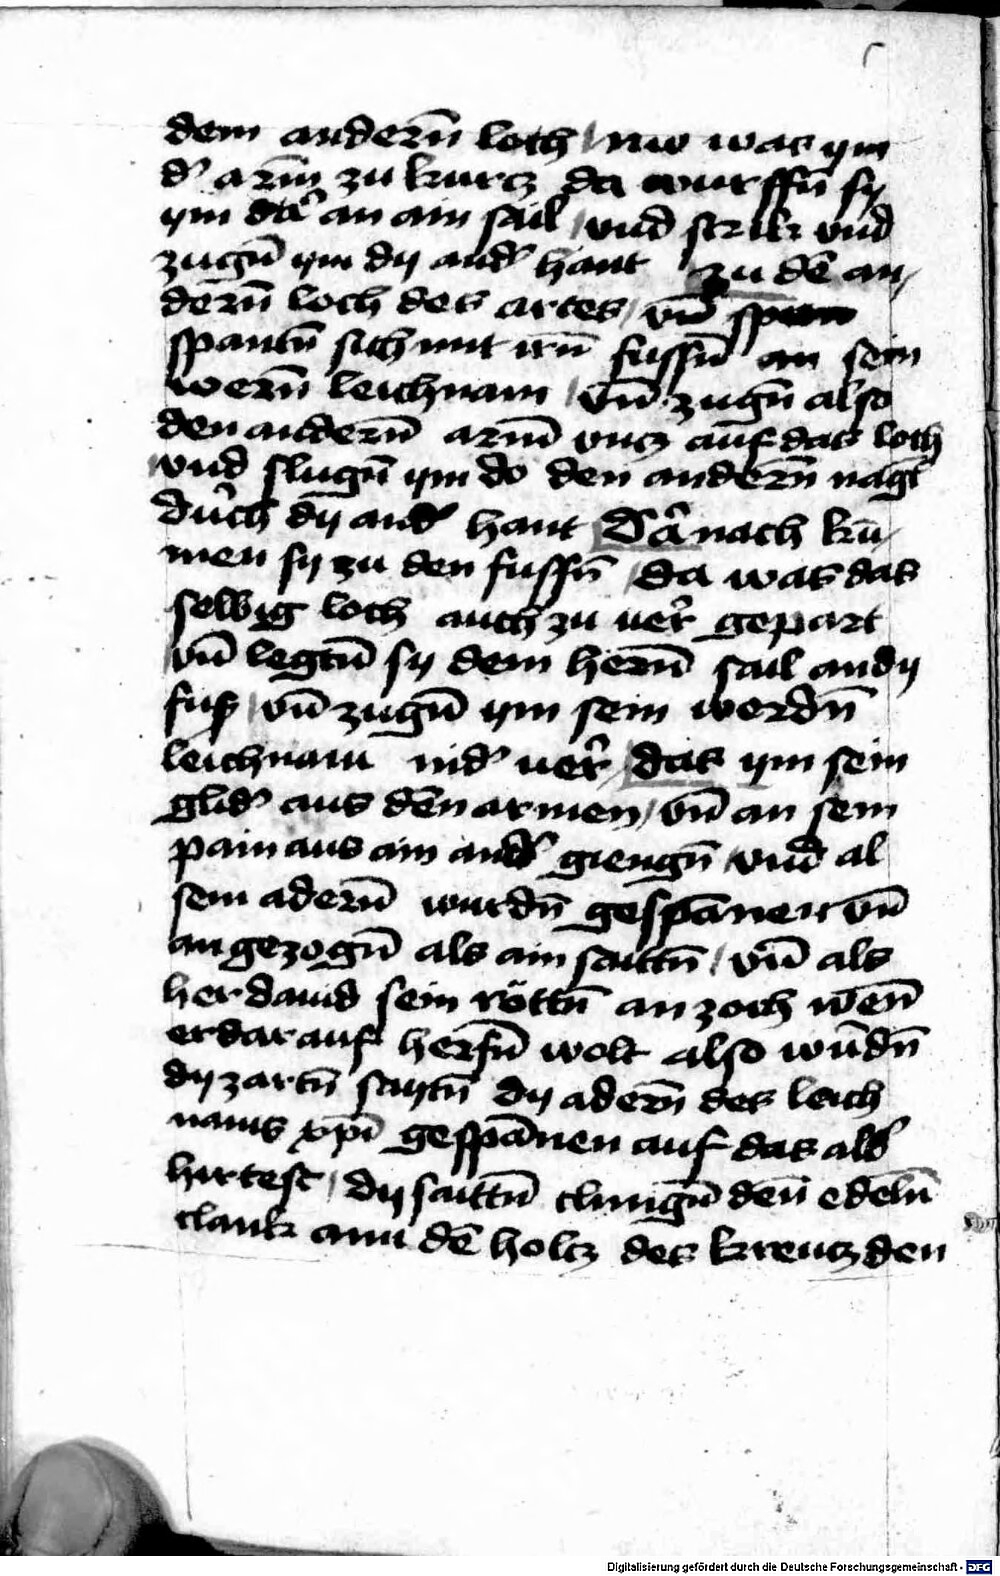 dem andern̄ loch / nw was ym
d' arm̄ zu kurcz da wurffn̄ sy
ym dar an ain sail / vnd strik vnd
zugn̄ ym dy and' hant zu dē an,
dern̄ loch des artes / vn̄
spantn̄ sich mit irn̄ fussn̄ an sein
wern̄ leichnam / vn̄ zugn̄ also
den andern̄ arm̄ vncz auf das loch
vnd slugn̄ ym do den andern̄ nagl
durch dy and' hant Dar nach ku̅,
men sy zu den fussn̄ / da was das
selbig loch auch zu uer' gepart
vn̄ legtn̄ sy dem hern̄ sail an dy
fuß / vn̄ zugn̄ ym sein werdn̄
leichnam nid' uer' / das ym sein
glid' aus den armen / vn̄ an sein
pain aus ain and' giengn̄ / vnd al
sein adern̄ wurdn̄ gespānen vn̄
angezogn̄ als ain saittn̄ / vn̄ als
her dauid sein röttn̄ an zoch wen̄
er dar auf herfn̄ wolt also wūdn̄
dy zartn̄ saytn̄ dy adern̄ des leich
nams xp̄i gespānen auf das all'
hirtest / dy saittn̄ clungn̄ den̄ edeln̄
clank ann dē holcz des kreucz den
Digitalisierung gefördert durch die Deutsche Forschungsgemeinschaft - DFG